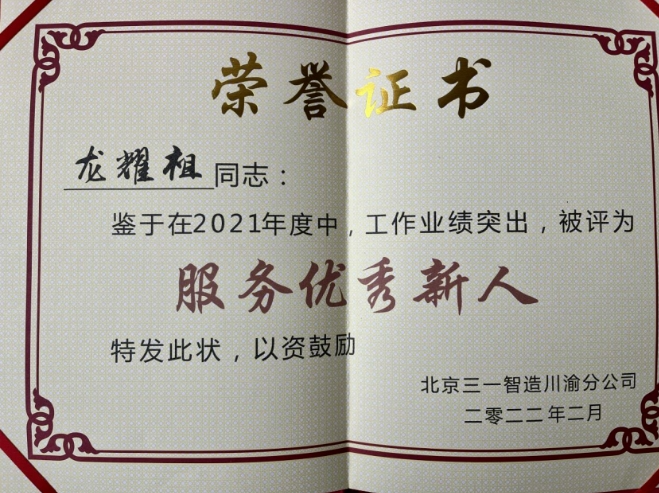 荣誉证书
龙耀祖同志：
鉴于在2021年度中，工作业绩突出，被评为
服务优秀新人
特发此状，以资鼓励
北京三一智造川渝分公司
二零二二年二月